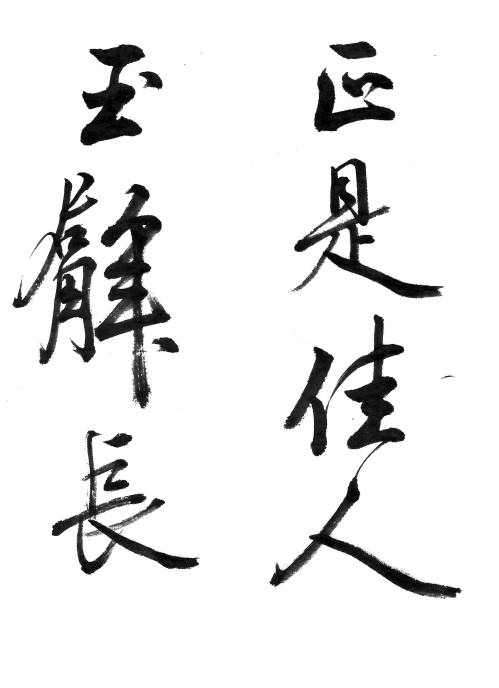 正是佳人
玉臂長